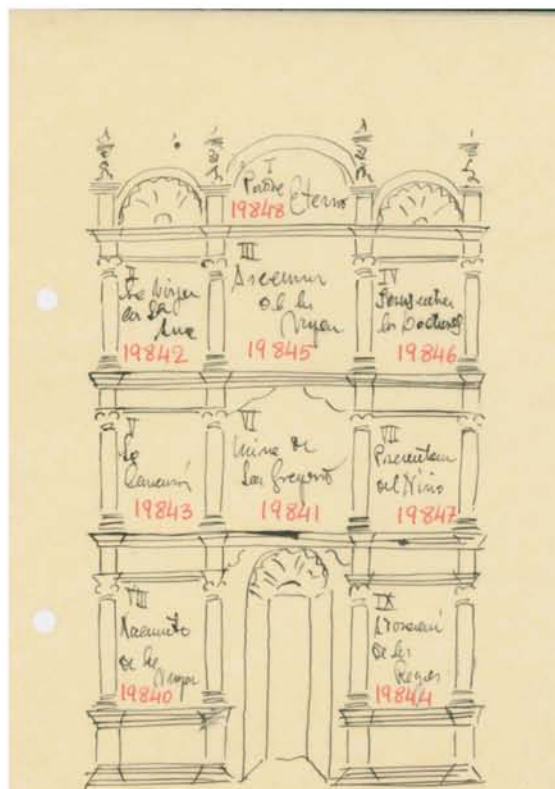 I
Padre Eterno
19848
II
La Virgen
con Sta
Ana
19842
III
Ascension
de la
Virgen
19845
IV
Jesus entre
los Doctores
19846
V
La
19843
VI
Misa de
San Gregorio
19841
VII
Presentacion
del Niño
19847
VIII
Nacimiento
de la
Virgen
19840
IX
Adoracion
de los
Reyes
19844